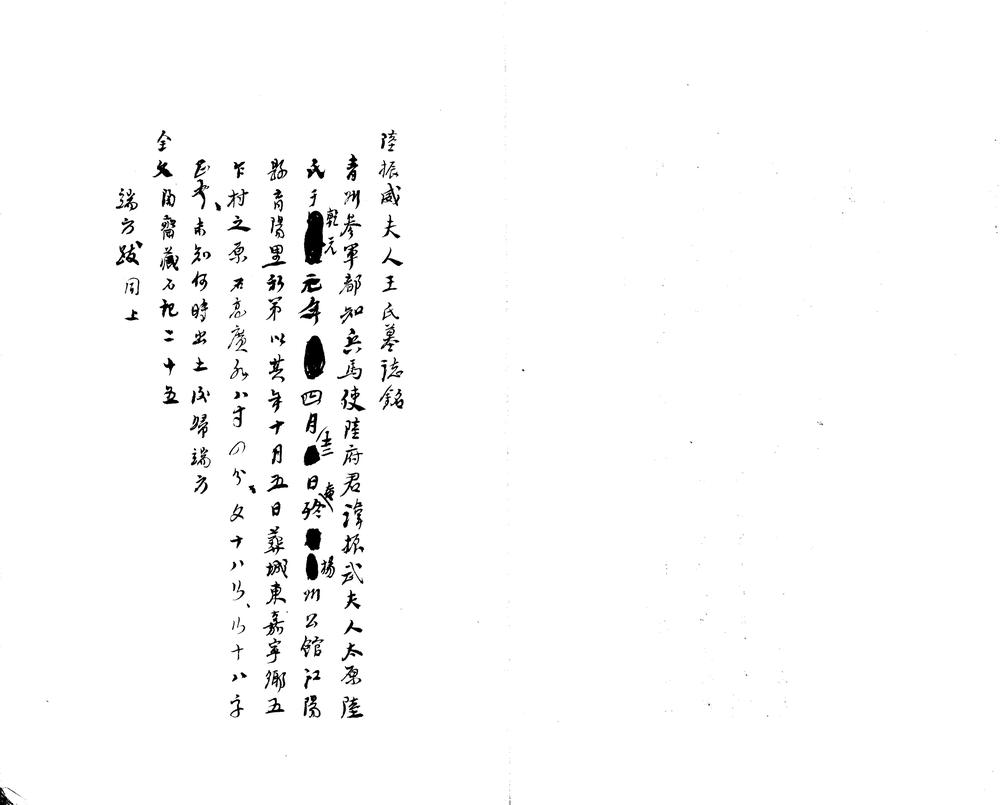 陸振威夫人王氏墓誌銘
青州參軍都知兵馬使陸府君諱振武夫人太原陸
氏于乾元元年四月十三日終揚州公館江陽
縣育陽里私第以其年十月五日葬城東嘉寧鄉五
乍村之原石高廣各八寸四分文十八行行十八字
正書未知何時出土後歸端方
全文匋齋藏石記二十五
端方跋同上